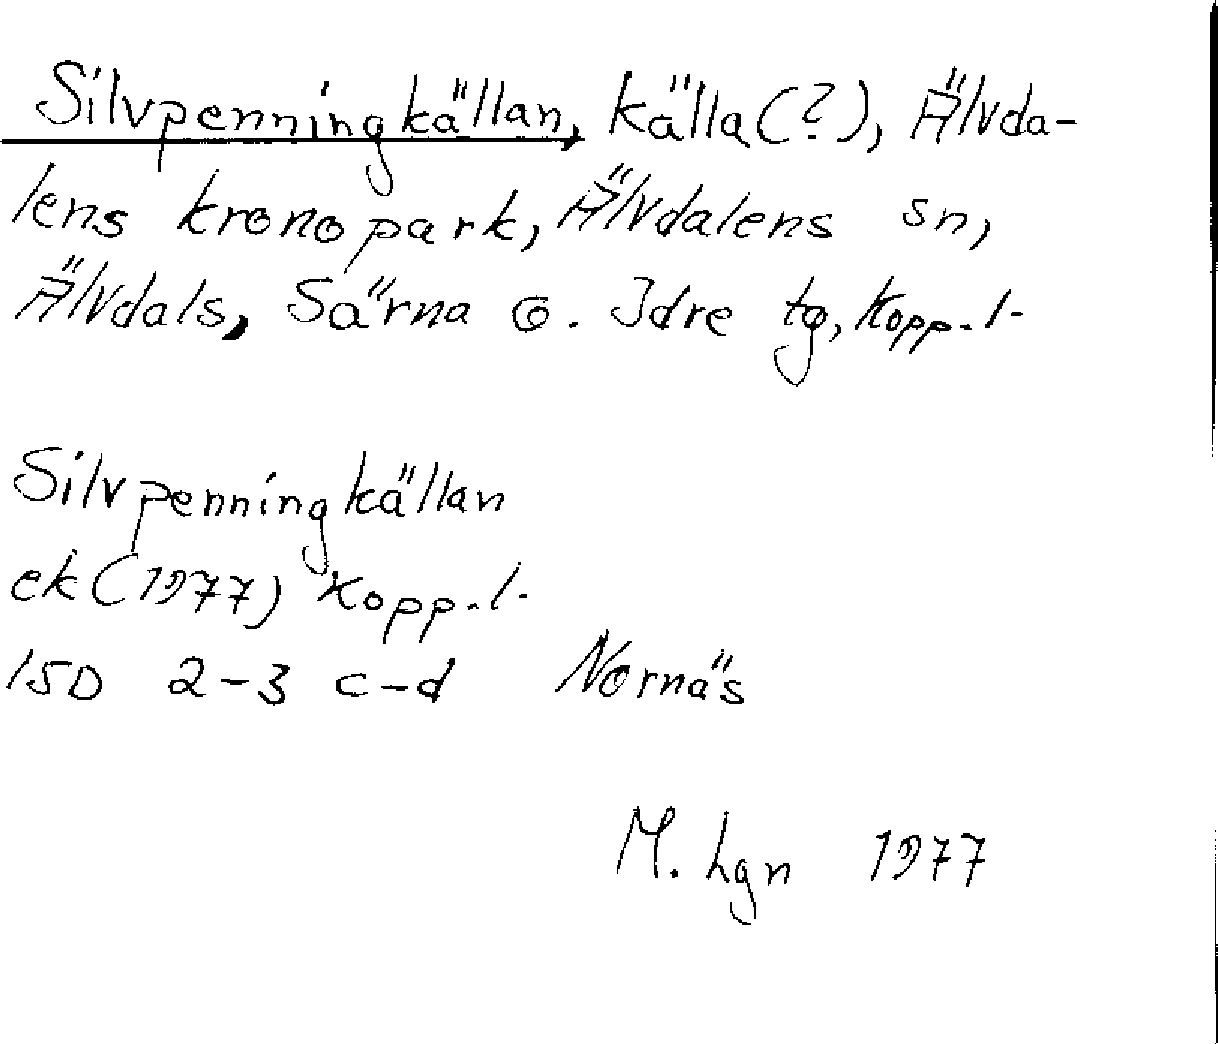 Silvpenningkällan, källa(?), Älvda-
lens kronopark, Älvdalens sn,
Älvdals, Särna o. Idre tg, Kopp.l.
Silvpenningkällan
ek(1977) Kopp.l.
15D 2-3 c-d Nornäs
M. Lgn 1977